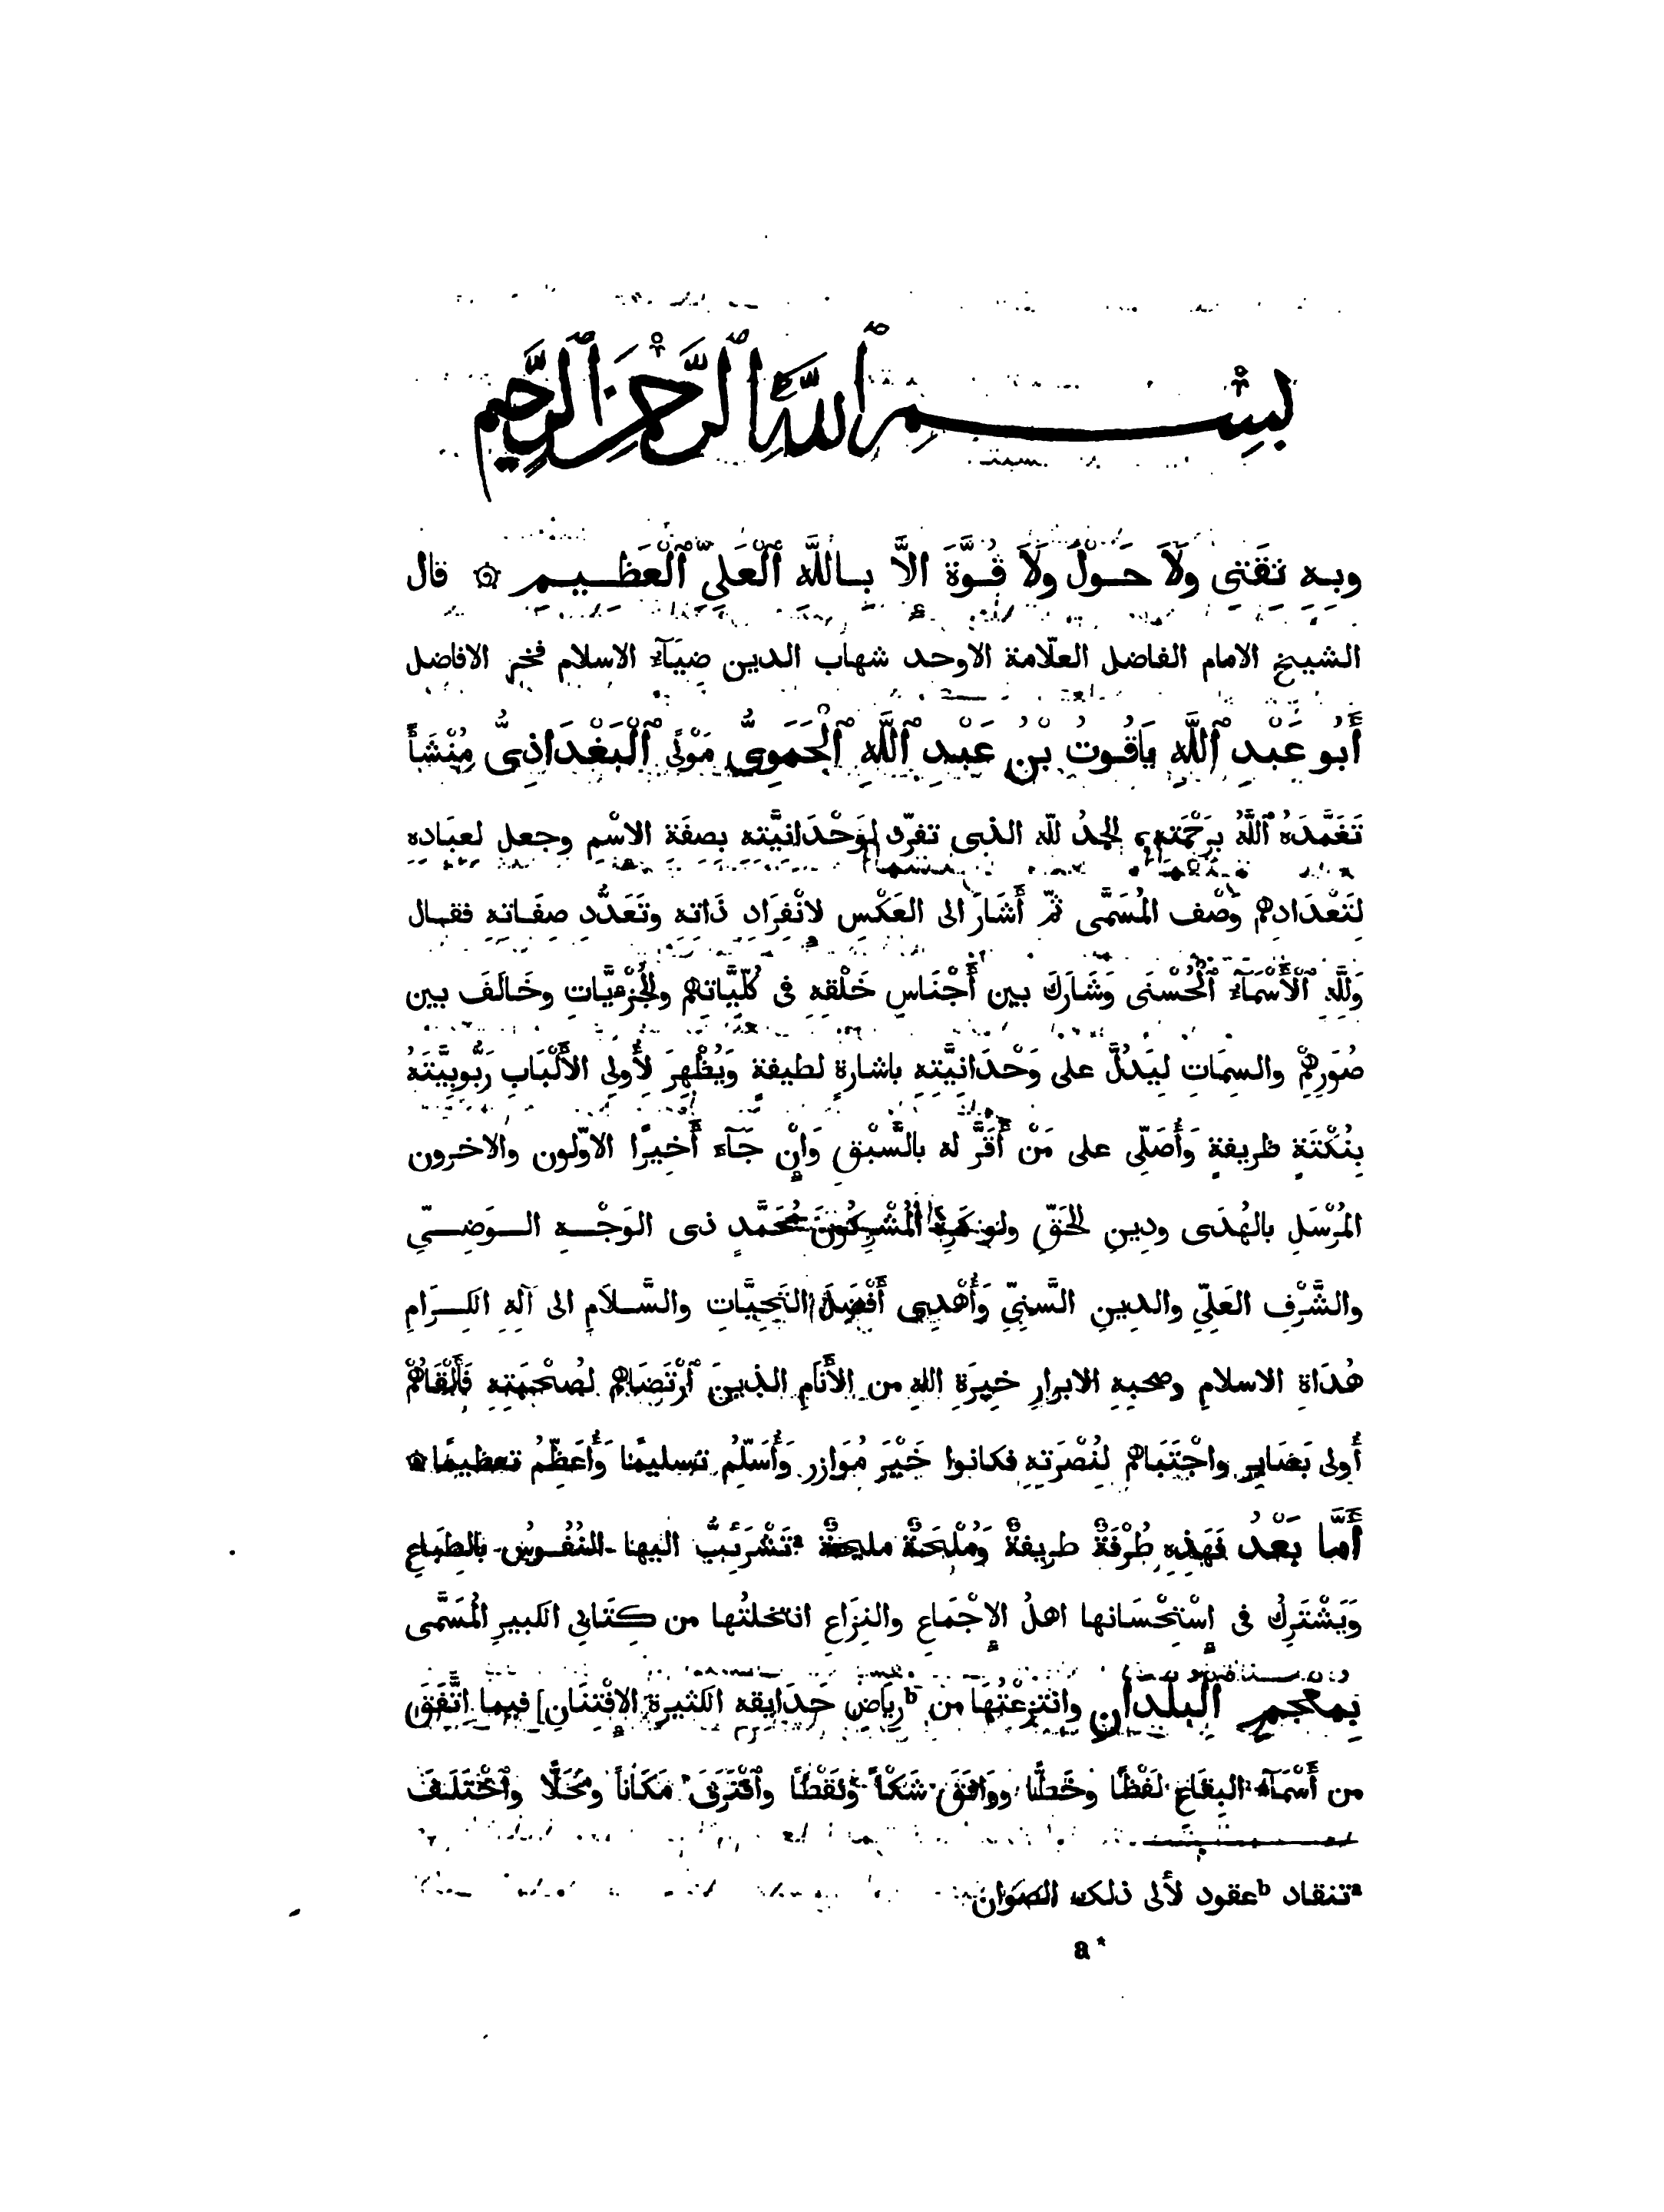 بِسْمِ ٱللَّهِ ٱلرَّحْمَٰنِ ٱلرَّحِيمِ
وبِهِ ثِقَتِى وَلَا حَوْلَ وَلَا قُوَّةَ الَّا بِاللَّهِ ٱلْعَلِىِّ ٱلْعَظِيمِ ۞ قال
الشيخ الامام الفاضل العلّامة الاوحد شهاب الدين ضِيَآء الاسلام فخر الافاضل
أَبُو عَبْدِ ٱللَّهِ يَاقُوتُ بْنُ عَبْدِ ٱللَّهِ ٱلْحَمَوِىُّ مَوْلًى ٱلْبَغْدَاذِىُّ مَنْشَأً
تَغَمَّدَهُ ٱللَّهُ بِرَحْمَتِهِ، الحمدُ للّه الذى تفرّد لِوَحْدَانِيَّتِه بصفَة الاسْمِ وجعل لعبَاده
لِتَعْدَادِهِم وَصْف المُسَمَّى ثمّ أَشَارَ الى العَكْسِ لانْفِرَادِ ذَاتِهِ وتَعَدُّدِ صِفَاتِهِ فقال
وَلِلَّهِ ٱلْأَسْمَآء ٱلْحُسْنَى وَشَارَكَ بين أَجْنَاسِ خَلْقِهِ فى كُلِّيَّاتِهِم والجُزْءِيَّاتِ وخَالَفَ بين
صُوَرِهِمْ والسِمَاتِ لِيَدُلَّ على وَحْدَانِيَّتِهِ باشارةٍ لطيفةٍ وَيُظْهِرَ لِأُولِى الأَلْبَابِ رَبُّوبِيَّتَهُ
بِنُكْتَةٍ ظريفةٍ وَأُصَلِّى على مَنْ أَقَرَّ له بالسَّبْقِ وَإِنْ جَآء أَخِيرًا الاوّلون والاخرون
المُرْسَلِ بالهُدَى ودِينِ الحَقِّ ولو كَرِهَ المُشْرِكُونَ مُحَمَّدٍ ذى الوَجْهِ الوَضِىِّ
والشَّرْفِ العَلِىِّ والدِينِ السَّنِىِّ وَأُهْدِى أَفْضَلَ التَّحِيَّاتِ والسَّلَامِ الى آلِهِ الكِرَامِ
هُدَاةِ الاسلامِ وصحبِهِ الابرارِ خِيرَةِ اللهِ من الأَنَامِ الذينَ ٱرْتَضَاهُم لصُحْبَتِهِ فَأَلْقَاهُمْ
أُولى بَصَايِر واجْتَبَاهُم لنُصْرَتِهِ فكانوا خَيْرَ مُوَازِر وَأُسَلِّمُ تسليمًا وَأُعَظِّمُ تعظيمًا ۞
أَمَّا بَعْدُ فَهَذِهِ طُرْفَةٌ طريفةٌ وَمُلْحَةٌ مليحةٌ ªتَشْرَئِبُّ اليها النُفُوسُ بالطِبَاعِ
وَيَشْتَرِكُ فى إِسْتِحْسَانها اهلُ الإِجْمَاعِ والنِزَاعِ انتخلتُها من كِتَابِى الكبيرِ المُسَمَّى
بِمعجمِ البُلْدَانِ وانْتزعْتُهَا من bرِيَاضِ حَدَايِقِه الكثيرةِ الإِفْتِنَانِ] فيما اتَّفَقَ
من أَسْمَآء البِقَاعِ لَفْظًا وخَطًّا ووَافَقَ شَكْلاً ونَقْطًا وٱفْتَرَقَ مَكَاناً ومَحَلًّا وٱخْتَلَفَ
ªتنقاد bعقود لأَلى ذلك الصَوان
a*